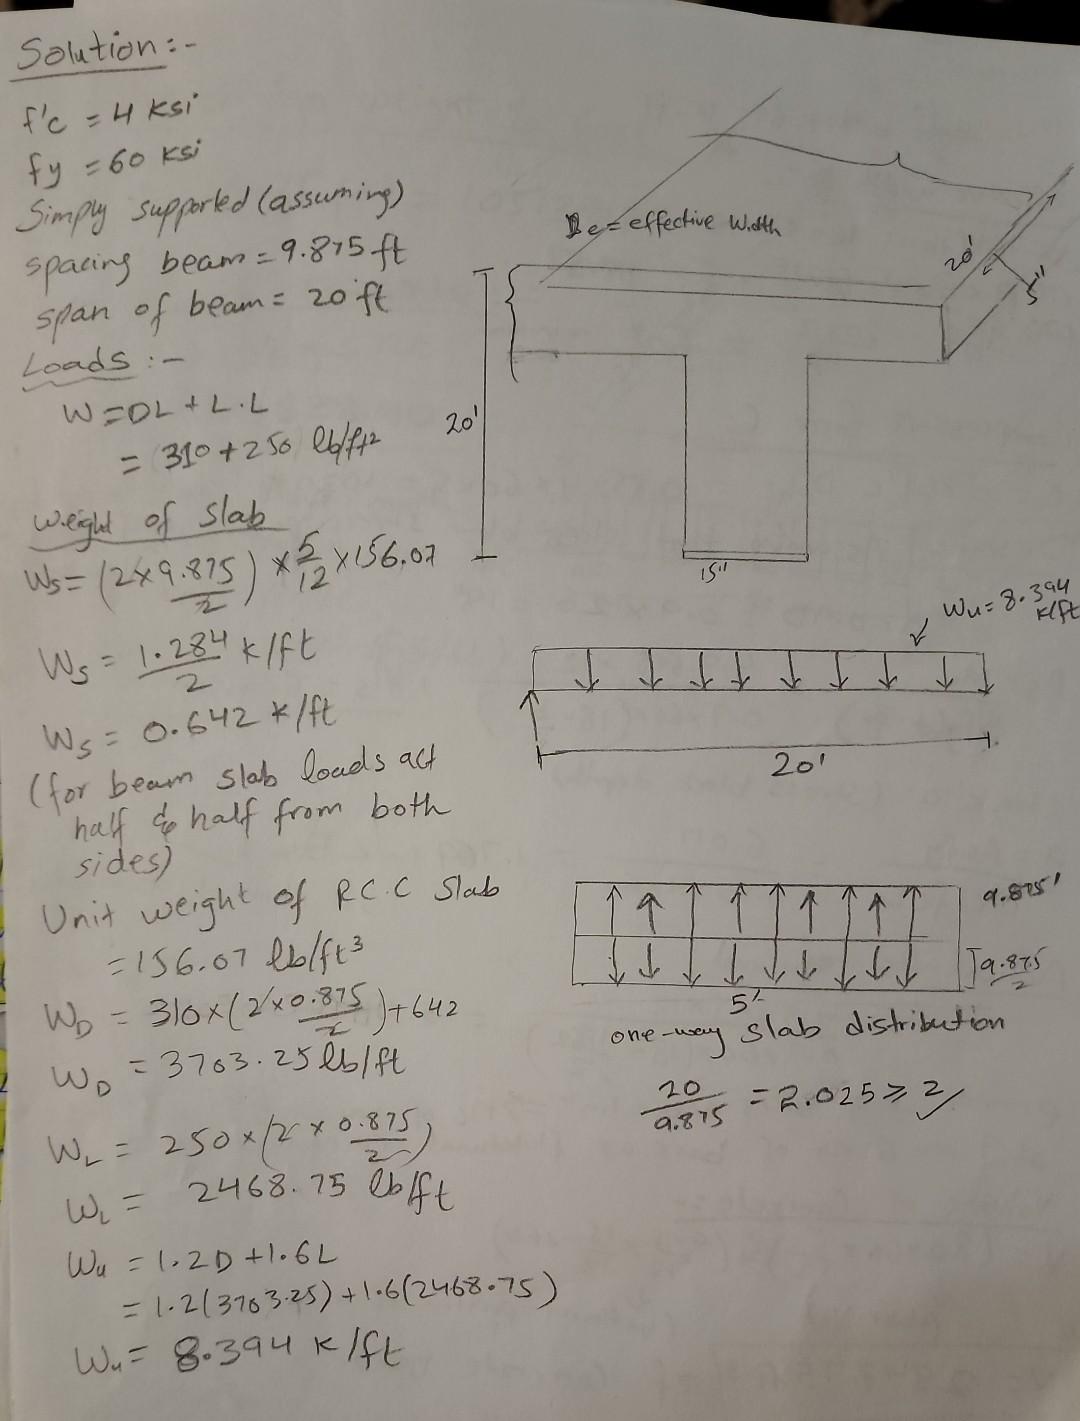 Solution:-
f'c = 4 ksi
fy = 60 ksi
Simply supported (assuming)
spacing beam = 9.875 ft
span of beam = 20 ft
Loads :-
W = DL + L.L
= 310 + 250 lb/ft2
weight of slab
Ws = (2x9.875/2) x 5/12 x 156.07
Ws = 1.284/2 k/ft
Ws = 0.642 k/ft
(for beam slab loads act
half & half from both
sides)
Unit weight of R.C.C Slab
= 156.07 lb/ft3
WD = 310x(2x0.875/2)+642
WD = 3703.25 lb/ft
WL = 250x(2 x 0.875/2)
WL = 2468.75 lb/ft
Wu = 1.2D + 1.6L
= 1.2(3703.25) + 1.6(2468.75)
Wu = 8.394 k/ft
be = effective Width
20'
5"
20'
15"
Wu = 8.394
k/ft
20'
9.875'
9.875/2
5'
one-way slab distribution
20/9.875 = 2.025 ≥ 2